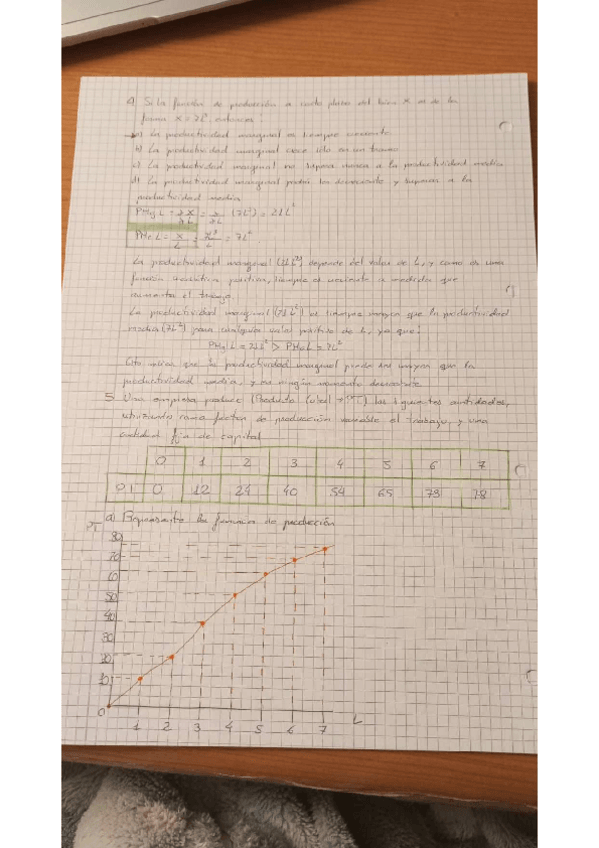 4 Si la función de producción a corto plazo del bien X es de la
forma X = 7L³, entonces:
a) La productividad marginal es siempre creciente
b) La productividad marginal crece sólo en un tramo
c) La productividad marginal no supera nunca a la productividad media
d) La productividad marginal podrá ser decreciente y superior a la
productividad media
PMgL = ∂X/∂L = ∂/∂L (7L³) = 21L²
PMeL = X/L = 7L³/L = 7L²
La productividad marginal (21L²) depende del valor de L, y como es una
función cuadrática positiva, siempre es creciente a medida que
aumenta el trabajo.
La productividad marginal (21L²) es siempre mayor que la productividad
media (7L²) para cualquier valor positivo de L, ya que:
PMgL = 21L² > PMeL = 7L²
que la productividad marginal puede ser mayor que la
productividad media, y en ningún momento decreciente
5 Una empresa produce (Producto total → PT) las siguientes cantidades,
utilizando como factor de producción variable el trabajo, y una
cantidad fija de capital
0 1 2 3 4 5 6 7
0 12 24 40 54 65 73 78
a) Represente la función de producción
80
70
60
50
40
30
20
10
0
1 2 3 4 5 6 7 L